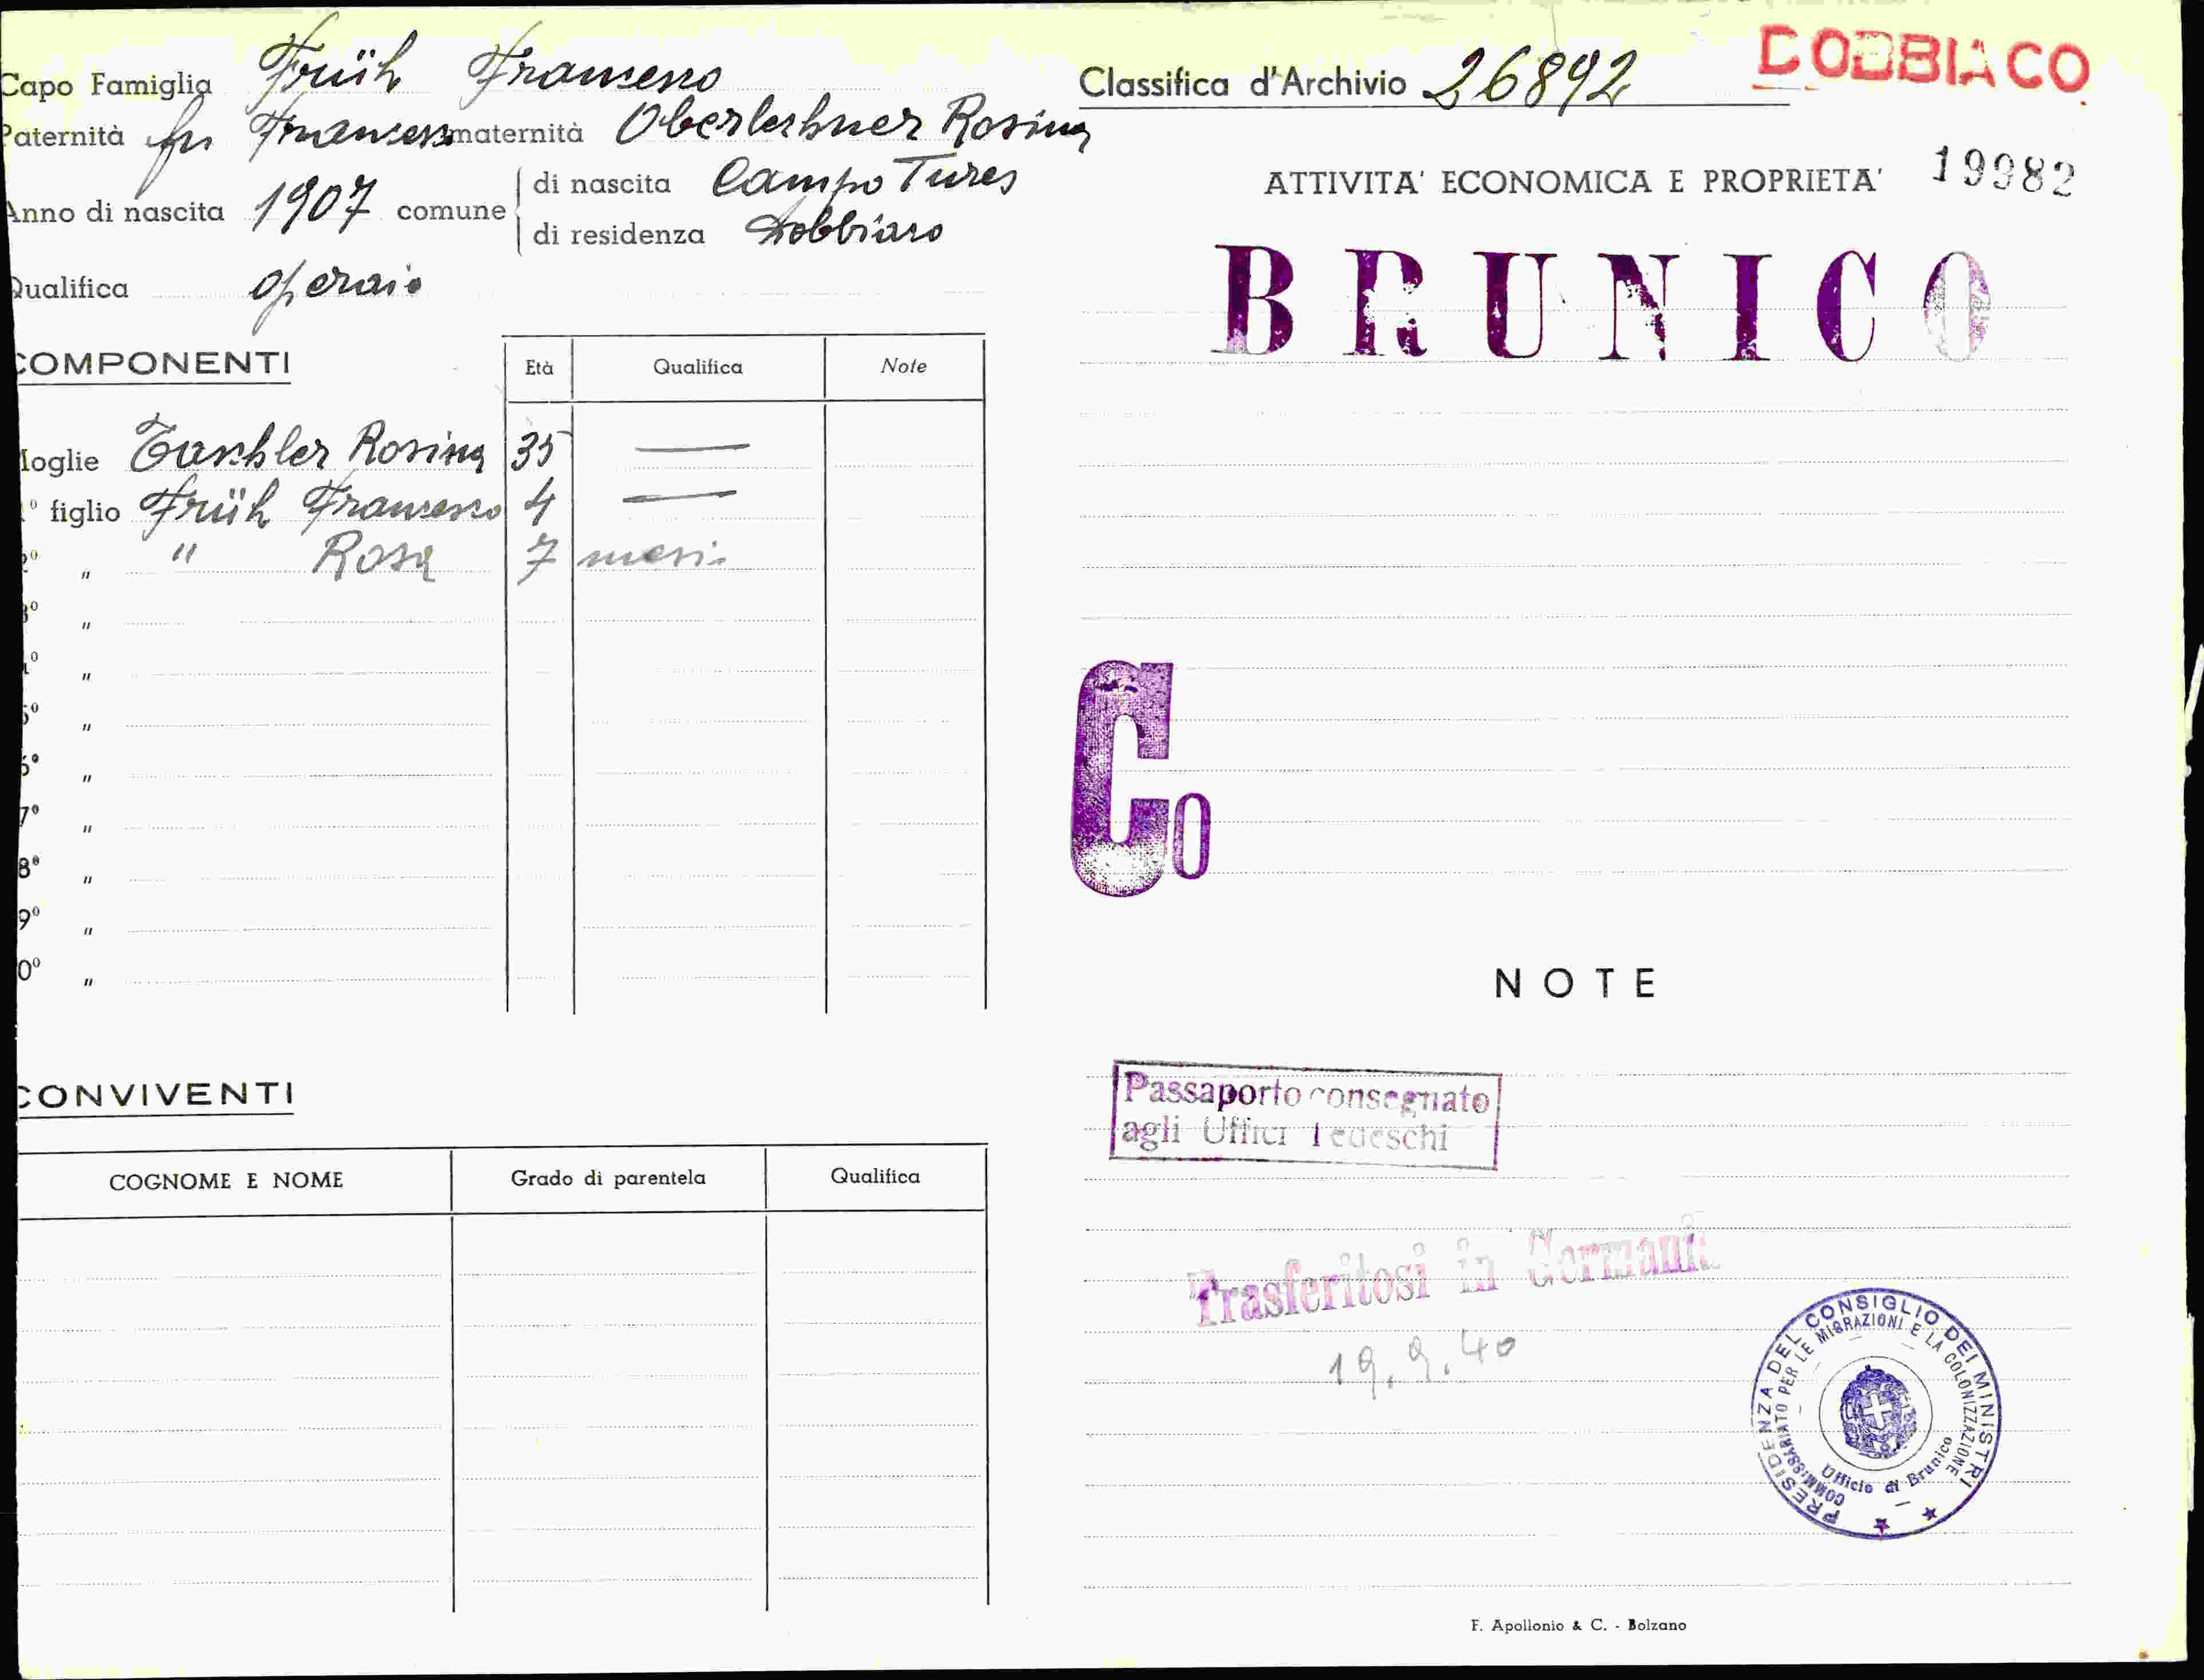 Capo Famiglia Früh Francesco
Paternità fu Francesco maternità Oberlechner Rosina
Anno di nascita 1907 comune di nascita Campo Tures
di residenza Dobbiaco
Qualifica operaio
COMPONENTI Età Qualifica Note
Moglie Taschler Rosina 35 —
1º figlio Früh Francesco 4 —
2º " " Rosa 7 mesi
3º "
4º "
5º "
6º "
7º "
8º "
9º "
0º "
CONVIVENTI
COGNOME E NOME Grado di parentela Qualifica
Classifica d'Archivio 26892
DOBBIACO
ATTIVITA' ECONOMICA E PROPRIETA' 19982
BRUNICO
Co
NOTE
Passaporto consegnato
agli Uffici Tedeschi
Trasferitosi in Germania
19.9.40
PRESIDENZA DEL CONSIGLIO DEI MINISTRI
COMMISSARIATO PER LE MIGRAZIONI E LA COLONIZZAZIONE
Ufficio di Brunico
F. Apollonio & C. - Bolzano